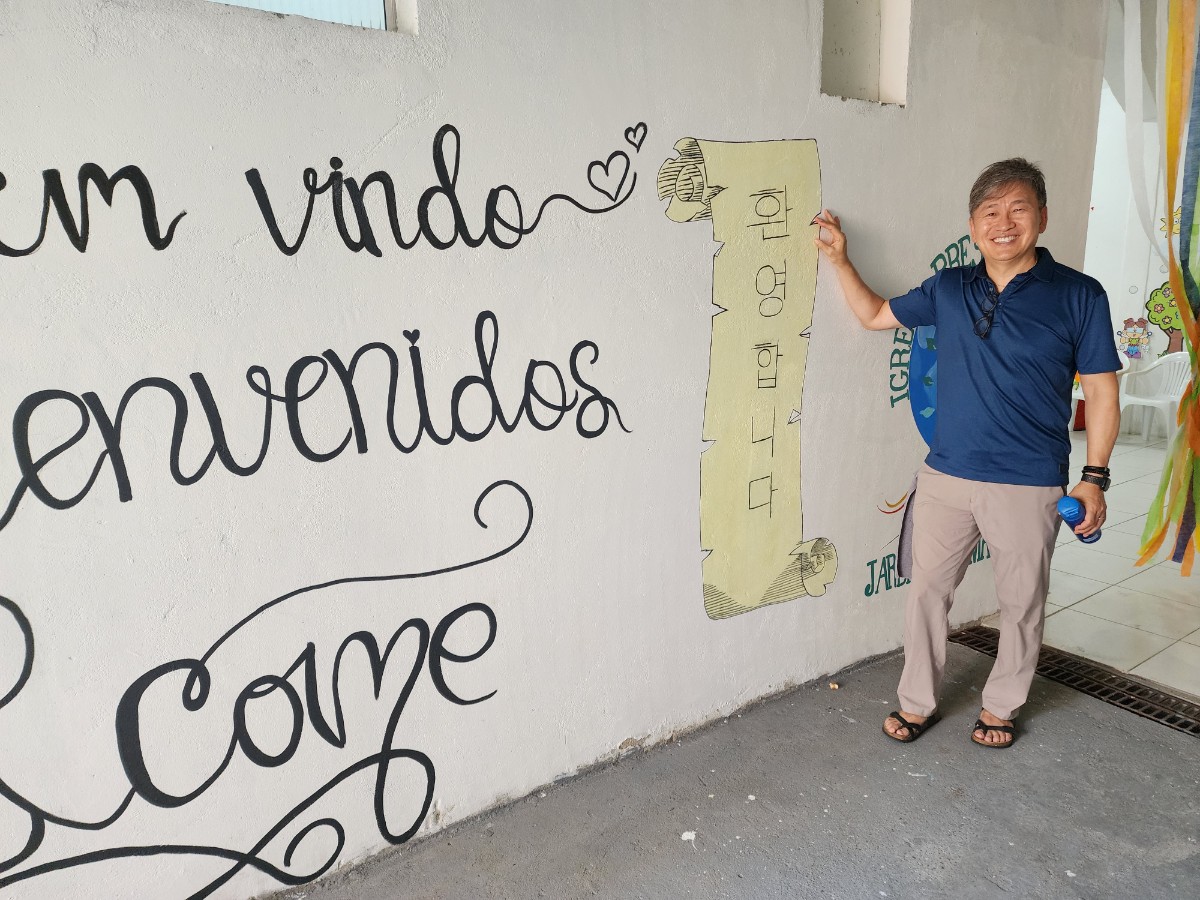 em vindo
envenidos
come
환영합니다
IGRE PRES
JARD MA